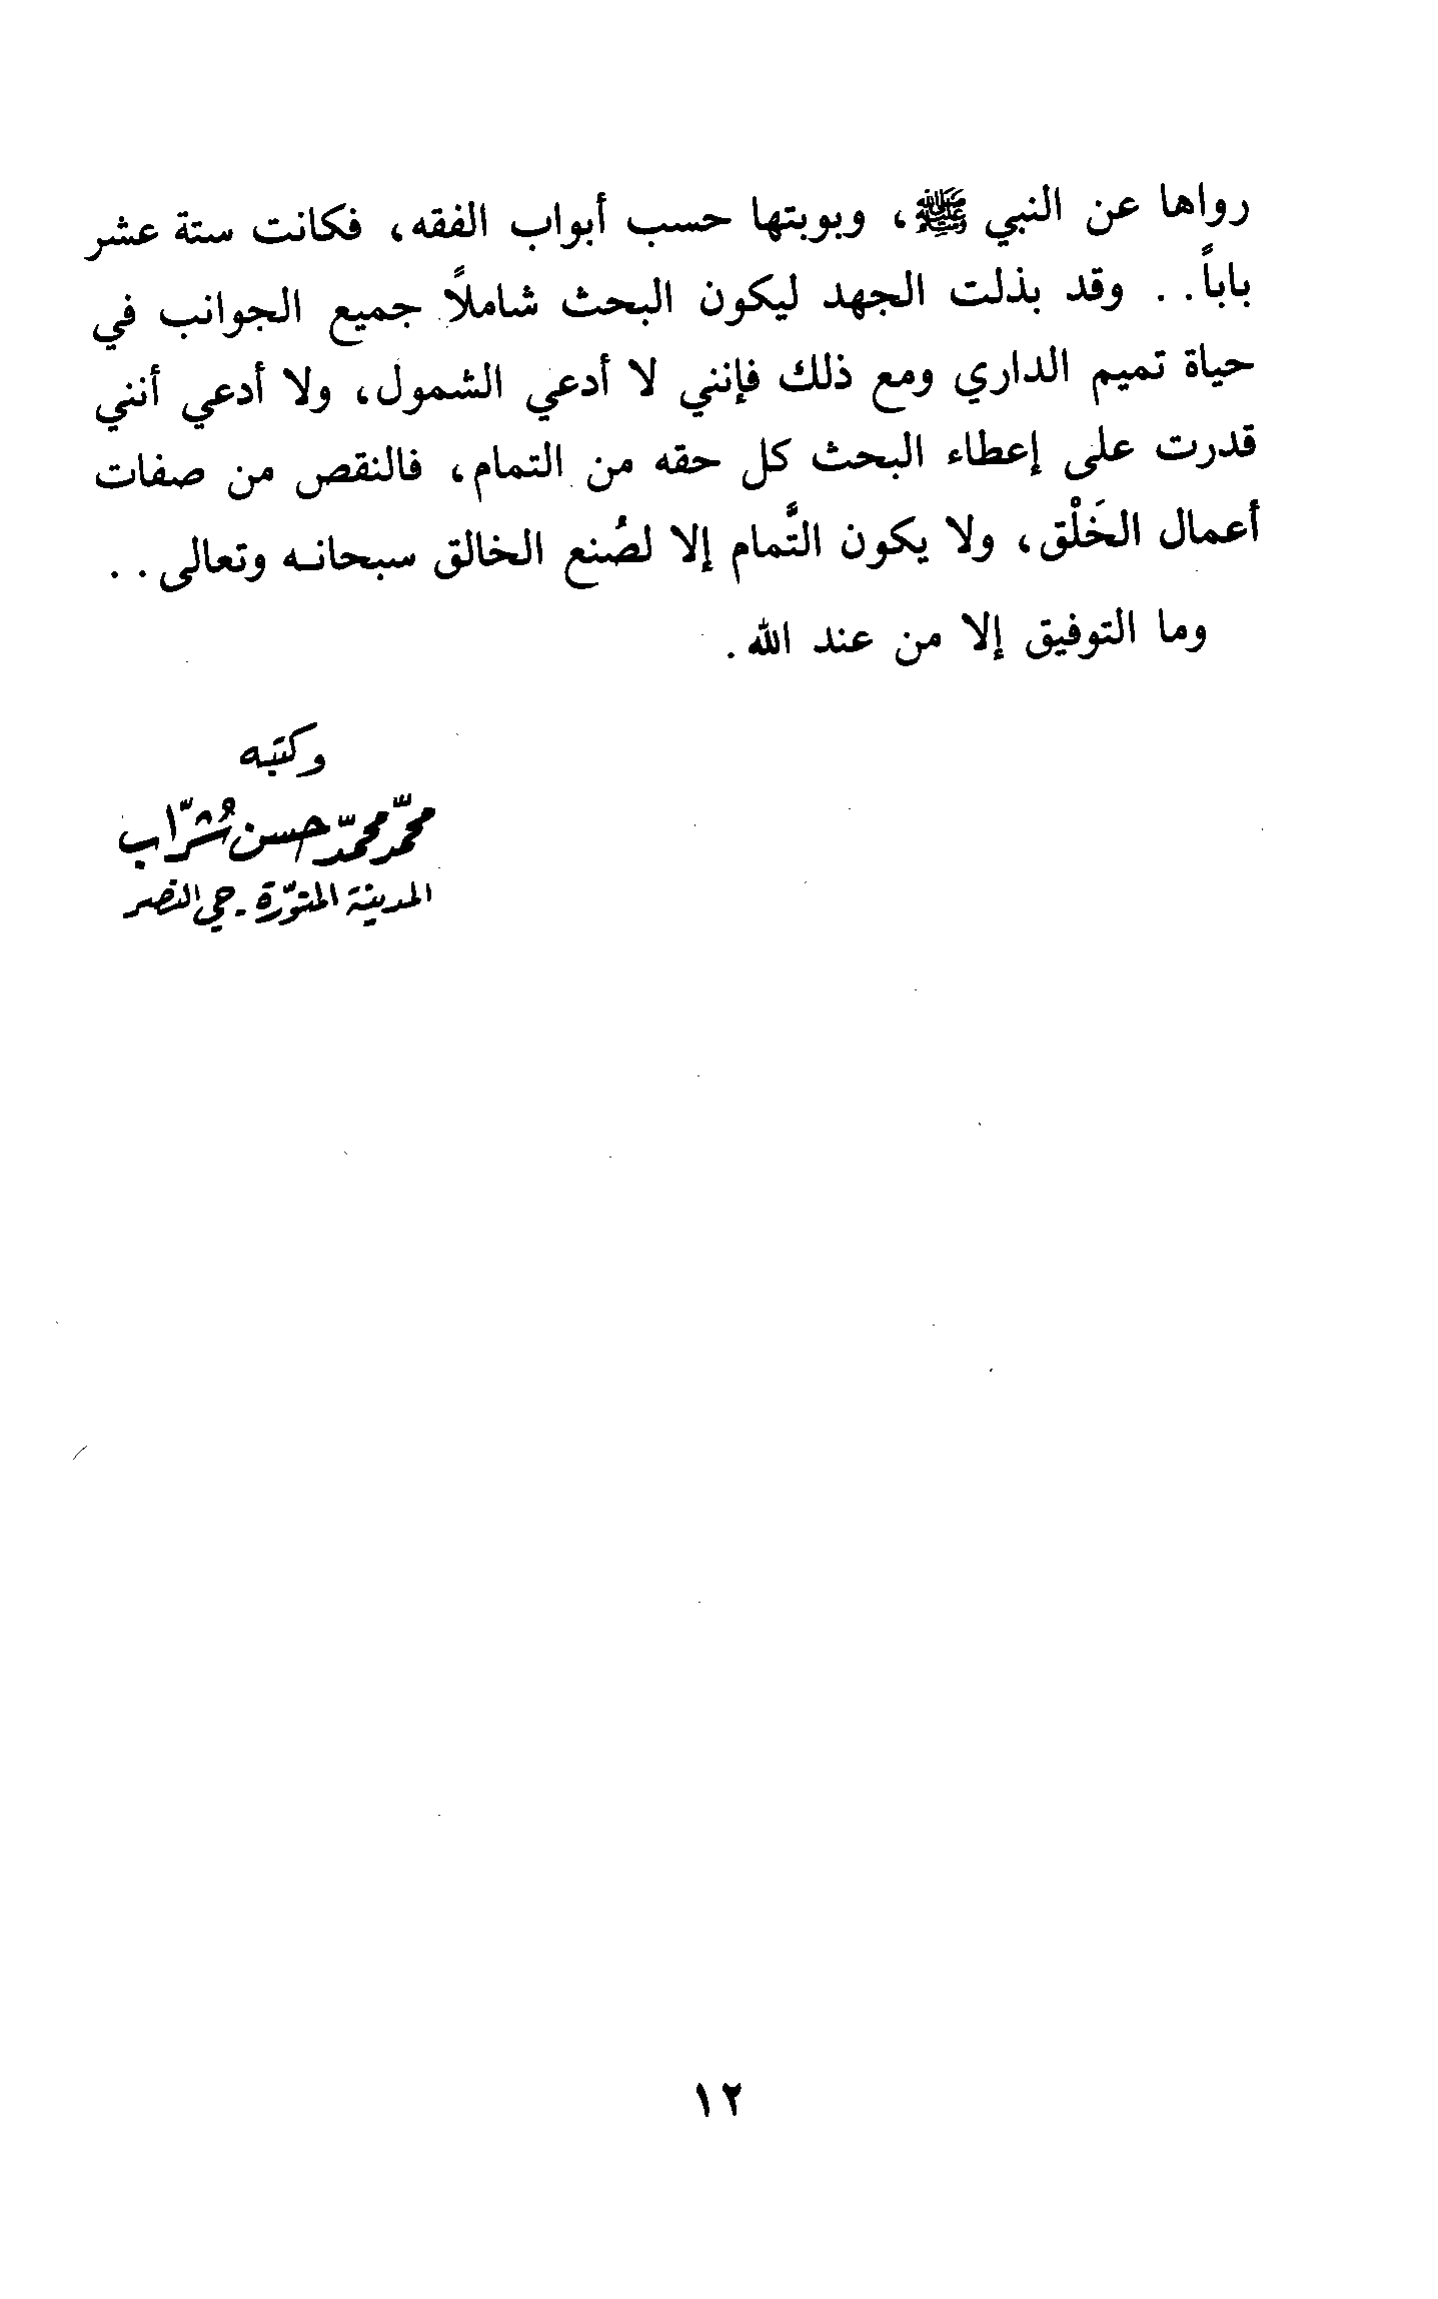 رواها عن النبي ﷺ، وبوبتها حسب أبواب الفقه، فكانت ستة عشر
باباً.. وقد بذلت الجهد ليكون البحث شاملاً جميع الجوانب في
حياة تميم الداري ومع ذلك فإنني لا أدعي الشمول، ولا أدعي أنني
قدرت على إعطاء البحث كل حقه من التمام، فالنقص من صفات
أعمال الخَلْق، ولا يكون التَّمام إلا لصُنع الخالق سبحانـه وتعالى..
وما التوفيق إلا من عند الله.
وكتبه
محمّد محمّد حسن شُرّاب
المدينة المنوّرة - حي النصر
١٢